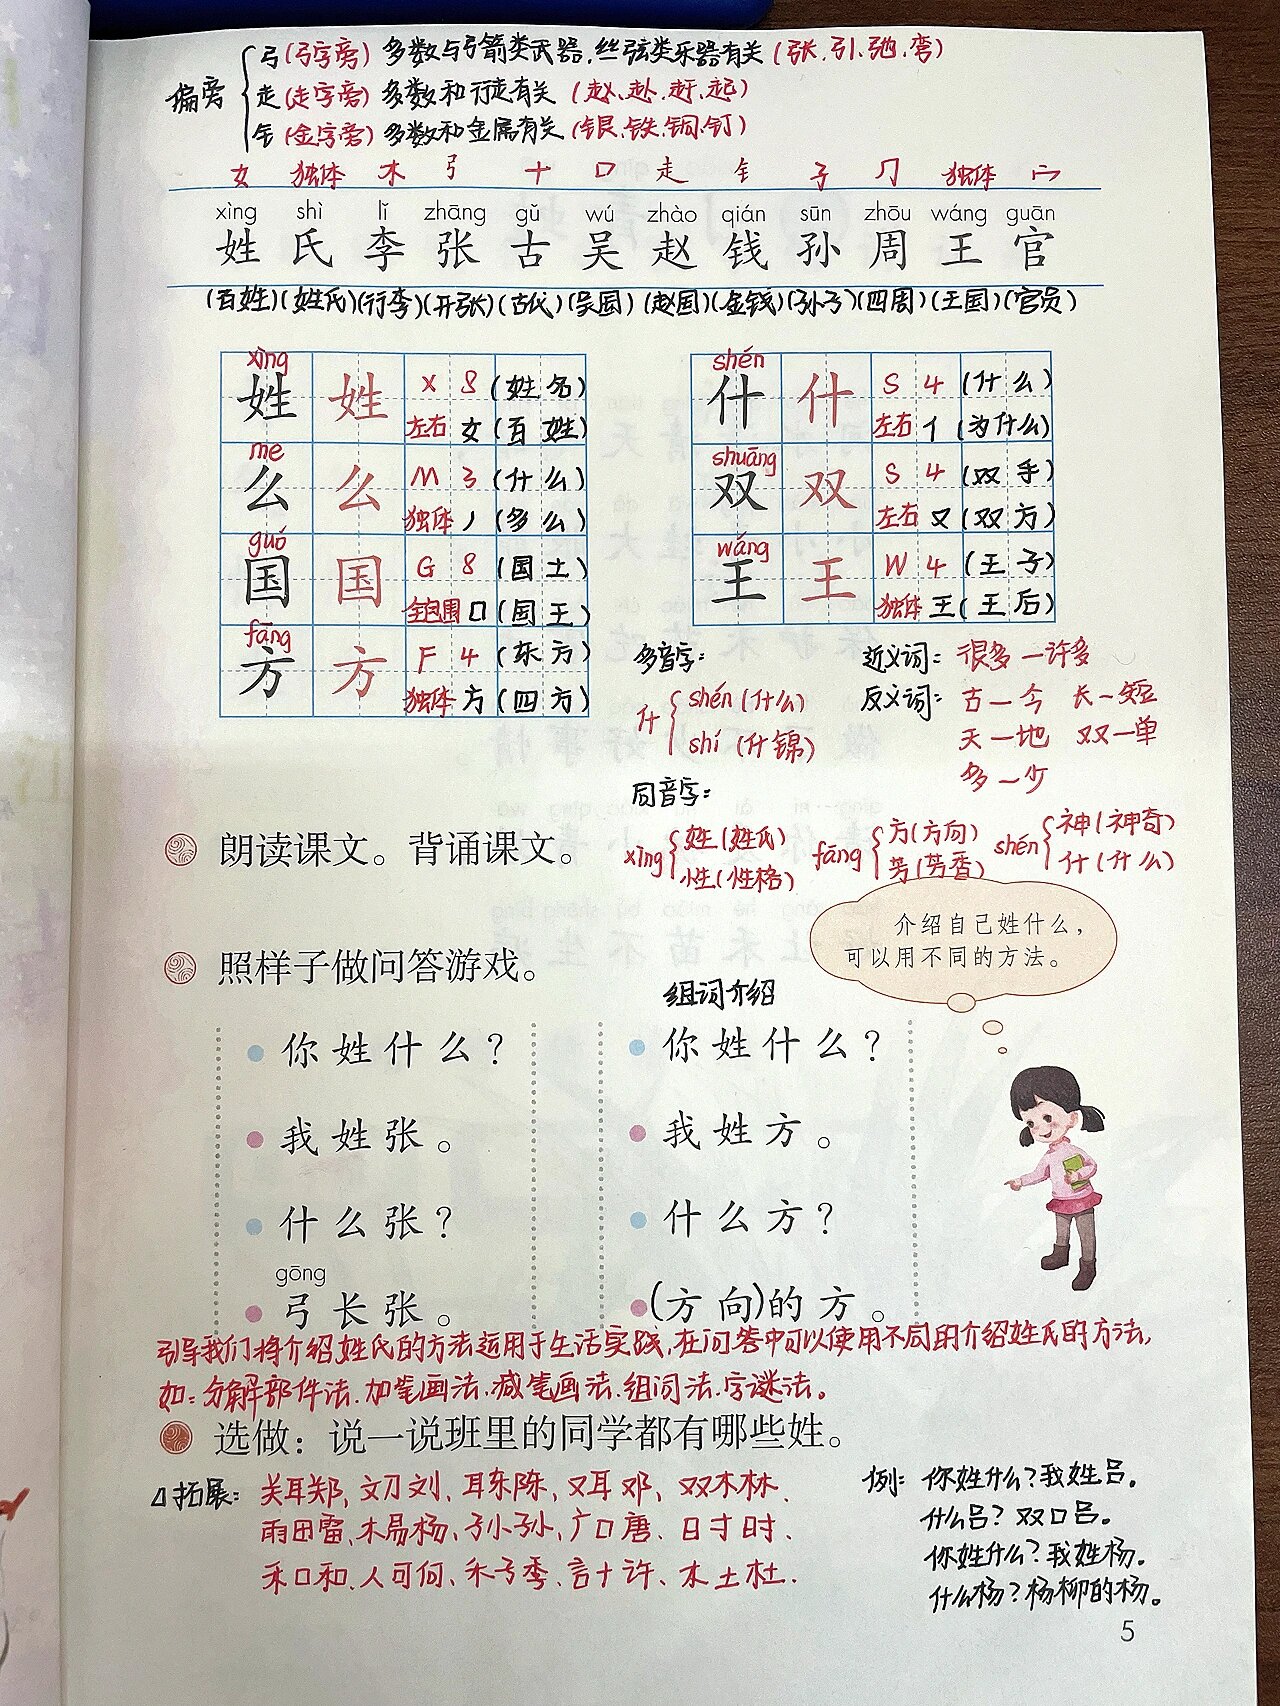 偏旁
弓(弓字旁)多数与弓箭类武器、丝弦类乐器有关(张、引、弛、弯)
走(走字旁)多数和行走有关(赵、赴、赶、起)
钅(金字旁)多数和金属有关(银、铁、铜、钉)
女 独体 木 弓 十 口 走 钅 子 冂 独体 宀
xìng shì lǐ zhāng gǔ wú zhào qián sūn zhōu wáng guān
姓 氏 李 张 古 吴 赵 钱 孙 周 王 官
(百姓)(姓氏)(行李)(开张)(古代)(吴国)(赵国)(金钱)(孙子)(四周)(王国)(官员)
xìng
姓 姓 X 8 (姓名)
左右 女 (百姓)
me
么 么 M 3 (什么)
独体 丿 (多么)
guó
国 国 G 8 (国土)
全包围 口 (国王)
fāng
方 方 F 4 (东方)
独体 方 (四方)
shén
什 什 S 4 (什么)
左右 亻 (为什么)
shuāng
双 双 S 4 (双手)
左右 又 (双方)
wáng
王 王 W 4 (王子)
独体 王 (王后)
多音字:
什 shén (什么)
shí (什锦)
近义词: 很多—许多
反义词: 古—今 长—短
天—地 双—单
多—少
同音字:
xìng 姓(姓氏)
性(性格)
fāng 方(方向)
芳(芳香)
shén 神(神奇)
什(什么)
朗读课文。背诵课文。
照样子做问答游戏。
介绍自己姓什么,
可以用不同的方法。
组词介绍
你姓什么?
我姓张。
什么张?
gōng
弓长张。
你姓什么?
我姓方。
什么方?
(方向)的方。
引导我们将介绍姓氏的方法运用于生活实践,在问答中可以使用不同的介绍姓氏的方法,
如:分解部件法、加笔画法、减笔画法、组词法、字谜法。
选做:说一说班里的同学都有哪些姓。
拓展: 关耳郑、文刀刘、耳东陈、又耳邓、双木林、
雨田雷、木易杨、子小孙、广口唐、日寸时、
禾口和、人可何、禾子季、言十许、木土杜.
例: 你姓什么?我姓吕。
什么吕?双口吕。
你姓什么?我姓杨。
什么杨?杨柳的杨。
5